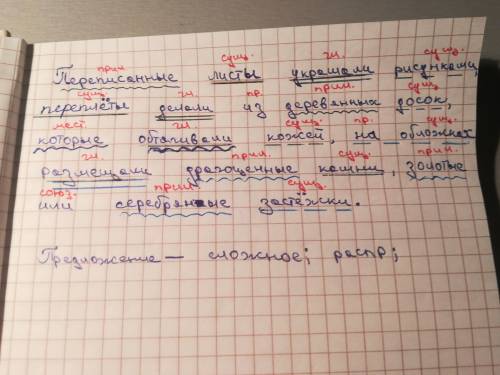 прич. сущ. гл. сущ.
Переписанные листы украшали рисунками,
сущ. гл. пр. прил. сущ.
переплёты делали из деревянных досок,
мест. гл. сущ. пр. сущ.
которые обтягивали кожей, на обложках
гл. прил. сущ. прил.
размещали драгоценные камни, золотые
союз прил. сущ.
или серебряные застёжки.
Предложение — сложное; распр;